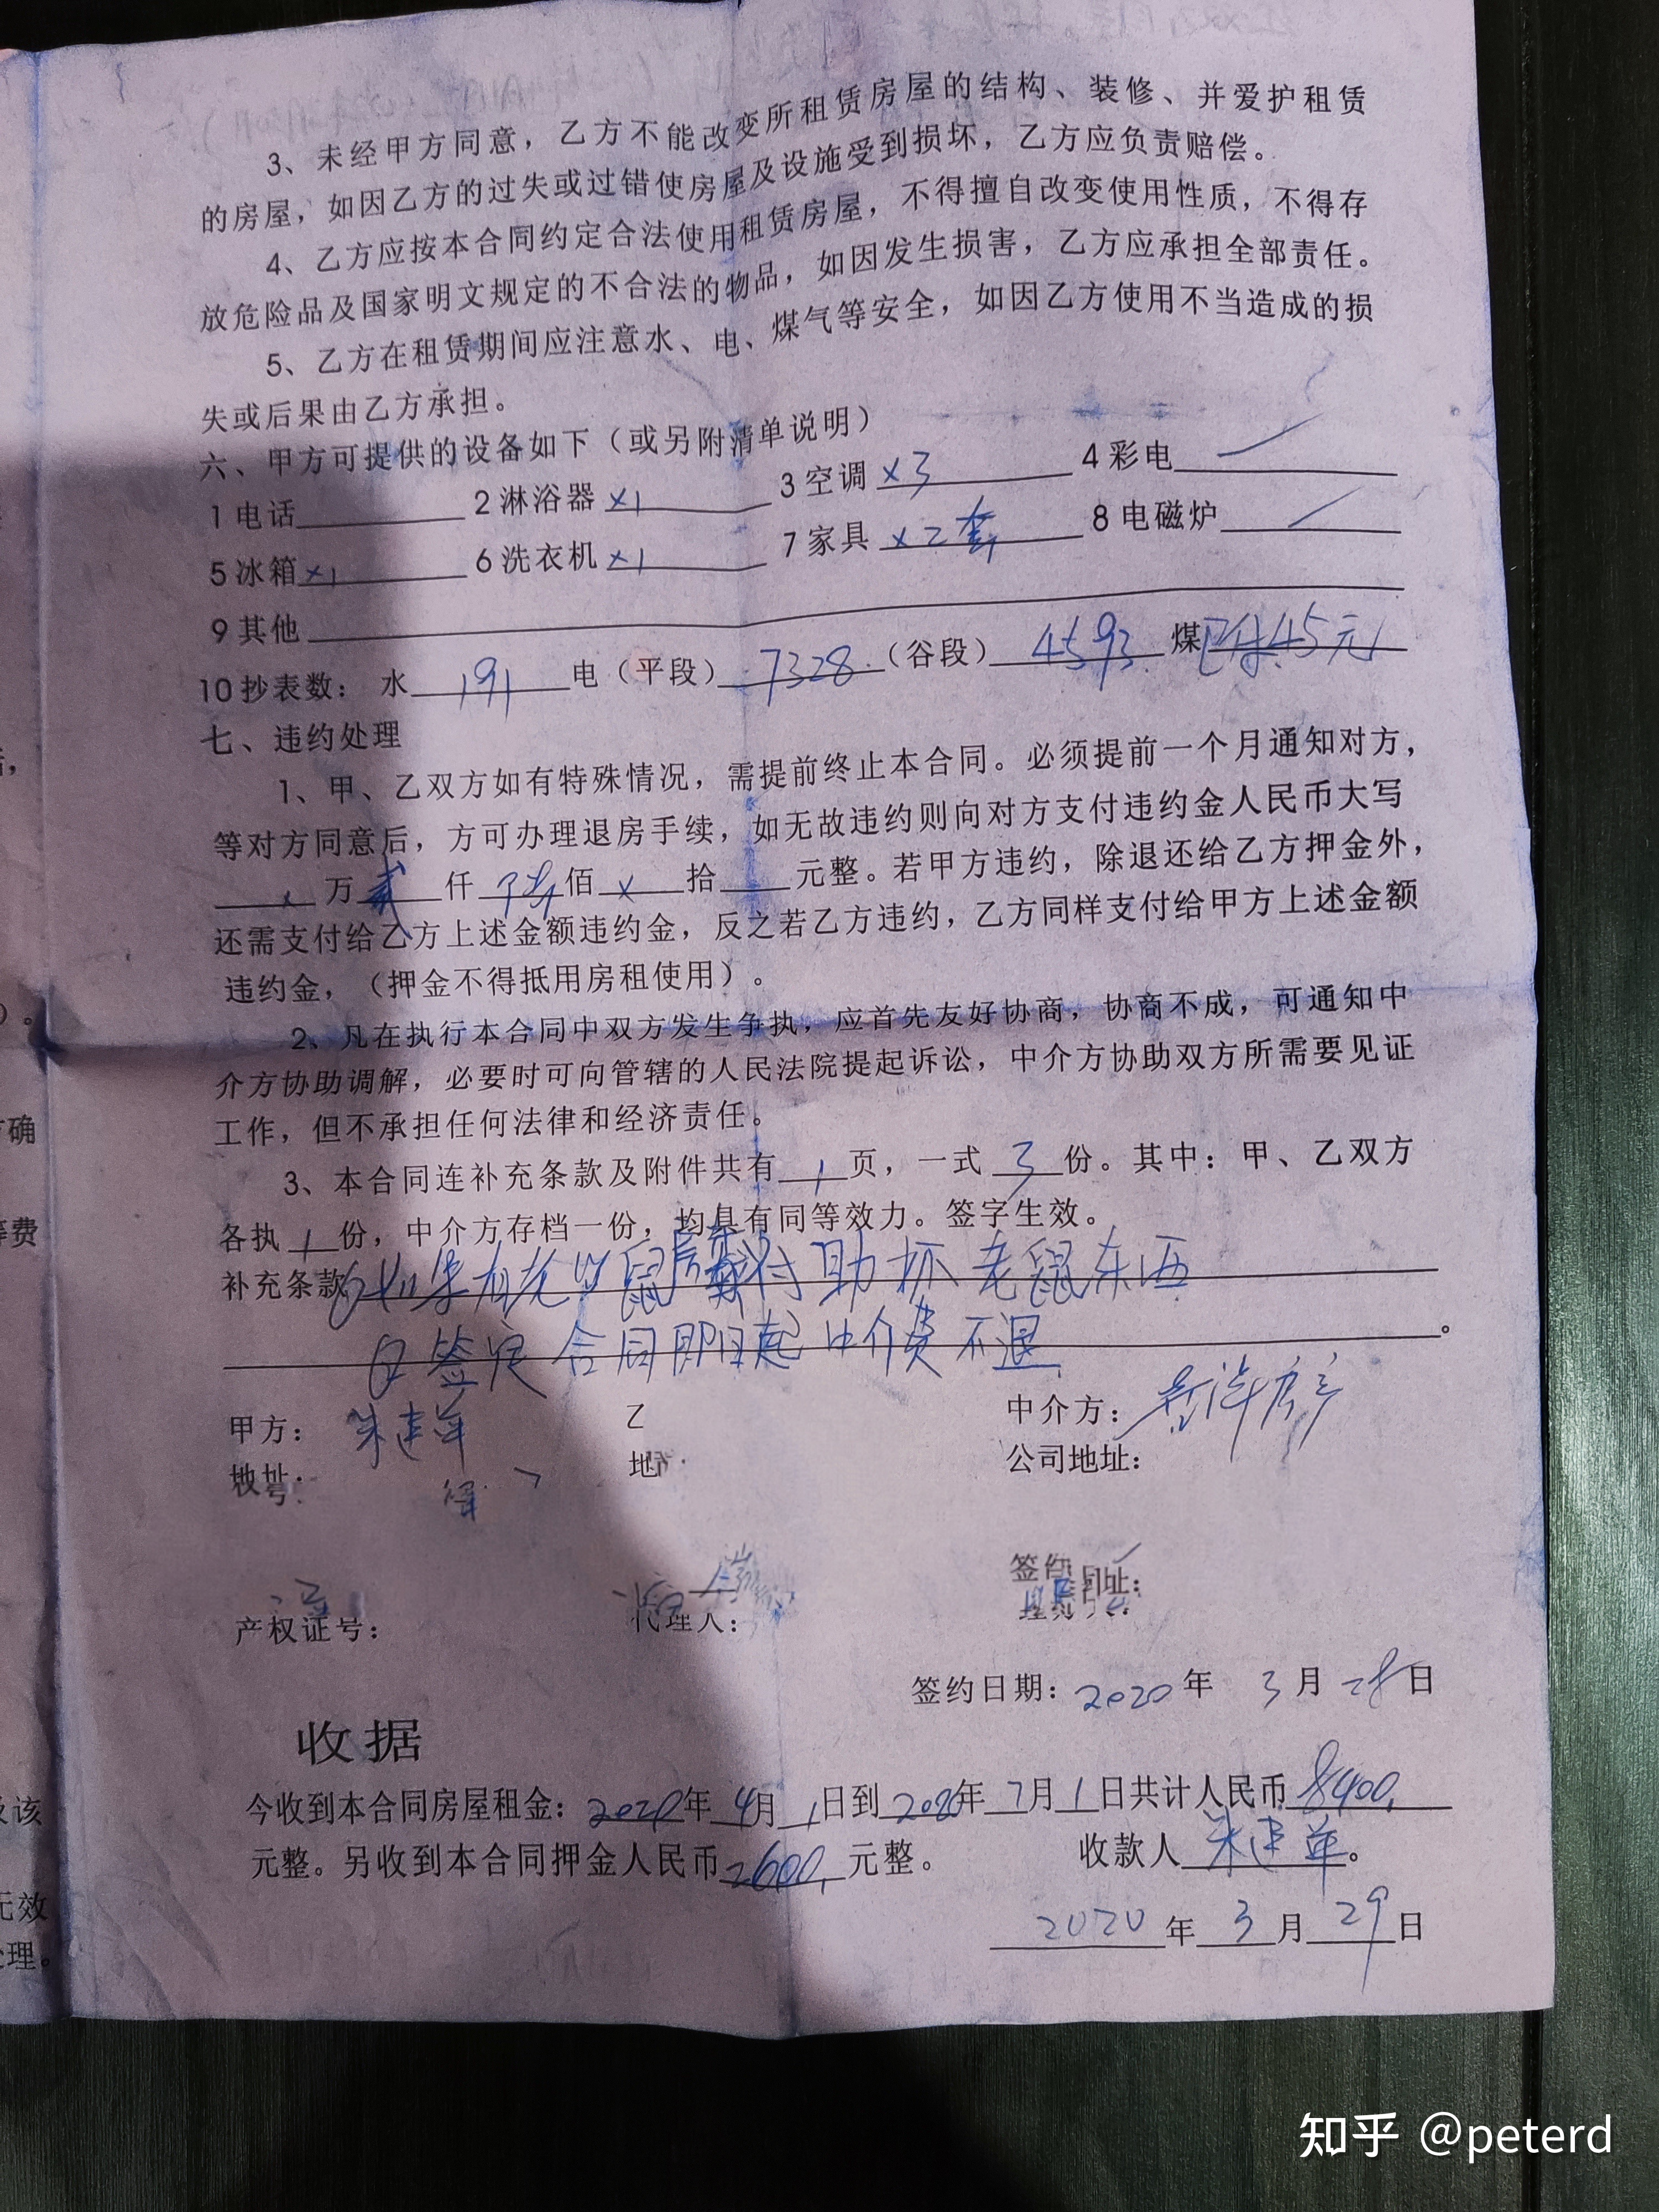 3、未经甲方同意，乙方不能改变所租赁房屋的结构、装修、并爱护租赁
的房屋，如因乙方的过失或过错使房屋及设施受到损坏，乙方应负责赔偿。
4、乙方应按本合同约定合法使用租赁房屋，不得擅自改变使用性质，不得存
放危险品及国家明文规定的不合法的物品，如因发生损害，乙方应承担全部责任。
5、乙方在租赁期间应注意水、电、煤气等安全，如因乙方使用不当造成的损
失或后果由乙方承担。
六、甲方可提供的设备如下（或另附清单说明）
1电话 2淋浴器 x1 3空调 x3 4彩电
5冰箱 x1 6洗衣机 x1 7家具 x2套 8电磁炉
9其他
10抄表数： 水 191 电（平段） 7328 （谷段） 4593 煤 已付45元
七、违约处理
1、甲、乙双方如有特殊情况，需提前终止本合同。必须提前一个月通知对方，
等对方同意后，方可办理退房手续，如无故违约则向对方支付违约金人民币大写
x 万 贰 仟 佰 x 拾 元整。若甲方违约，除退还给乙方押金外，
还需支付给乙方上述金额违约金，反之若乙方违约，乙方同样支付给甲方上述金额
违约金，（押金不得抵用房租使用）。
2、凡在执行本合同中双方发生争执，应首先友好协商，协商不成，可通知中
介方协助调解，必要时可向管辖的人民法院提起诉讼，中介方协助双方所需要见证
工作，但不承担任何法律和经济责任。
3、本合同连补充条款及附件共有 1 页，一式 3 份。其中：甲、乙双方
各执 1 份，中介方存档一份，均具有同等效力。签字生效。
补充条款 如果有老鼠房东 助抓老鼠东西
自签定合同即日起中介费不退 。
甲方： 朱建军 乙 中介方：
地址： 地 公司地址：
产权证号： 代理人：
签约日期：2020年 3月 28日
收据
今收到本合同房屋租金：2020年 4月 1日到 2020年 7月 1日共计人民币 8400
元整。另收到本合同押金人民币 2600 元整。 收款人 朱建军。
2020年 3月 29日
话，
）。
方确
等费
及该
无效
处理。
知乎 @peterd